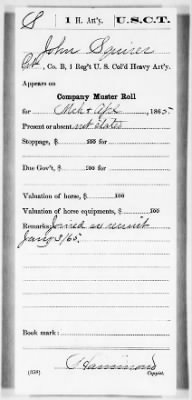 S 1 H. Art'y. U.S.C.T.
John Squires
Co. B, 1 Reg't U. S. Col'd Heavy Art'y.
Appears on
Company Muster Roll
for Mch & Apl, 1865
Present or absent not stated
Stoppage, $ 100 for
Due Gov't, $ 100 for
Valuation of horse, $ 100
Valuation of horse equipments, $ 100
Remarks: Joined as recruit
Jany 3/65.
Book mark:
(358) Hammond
Copyist.